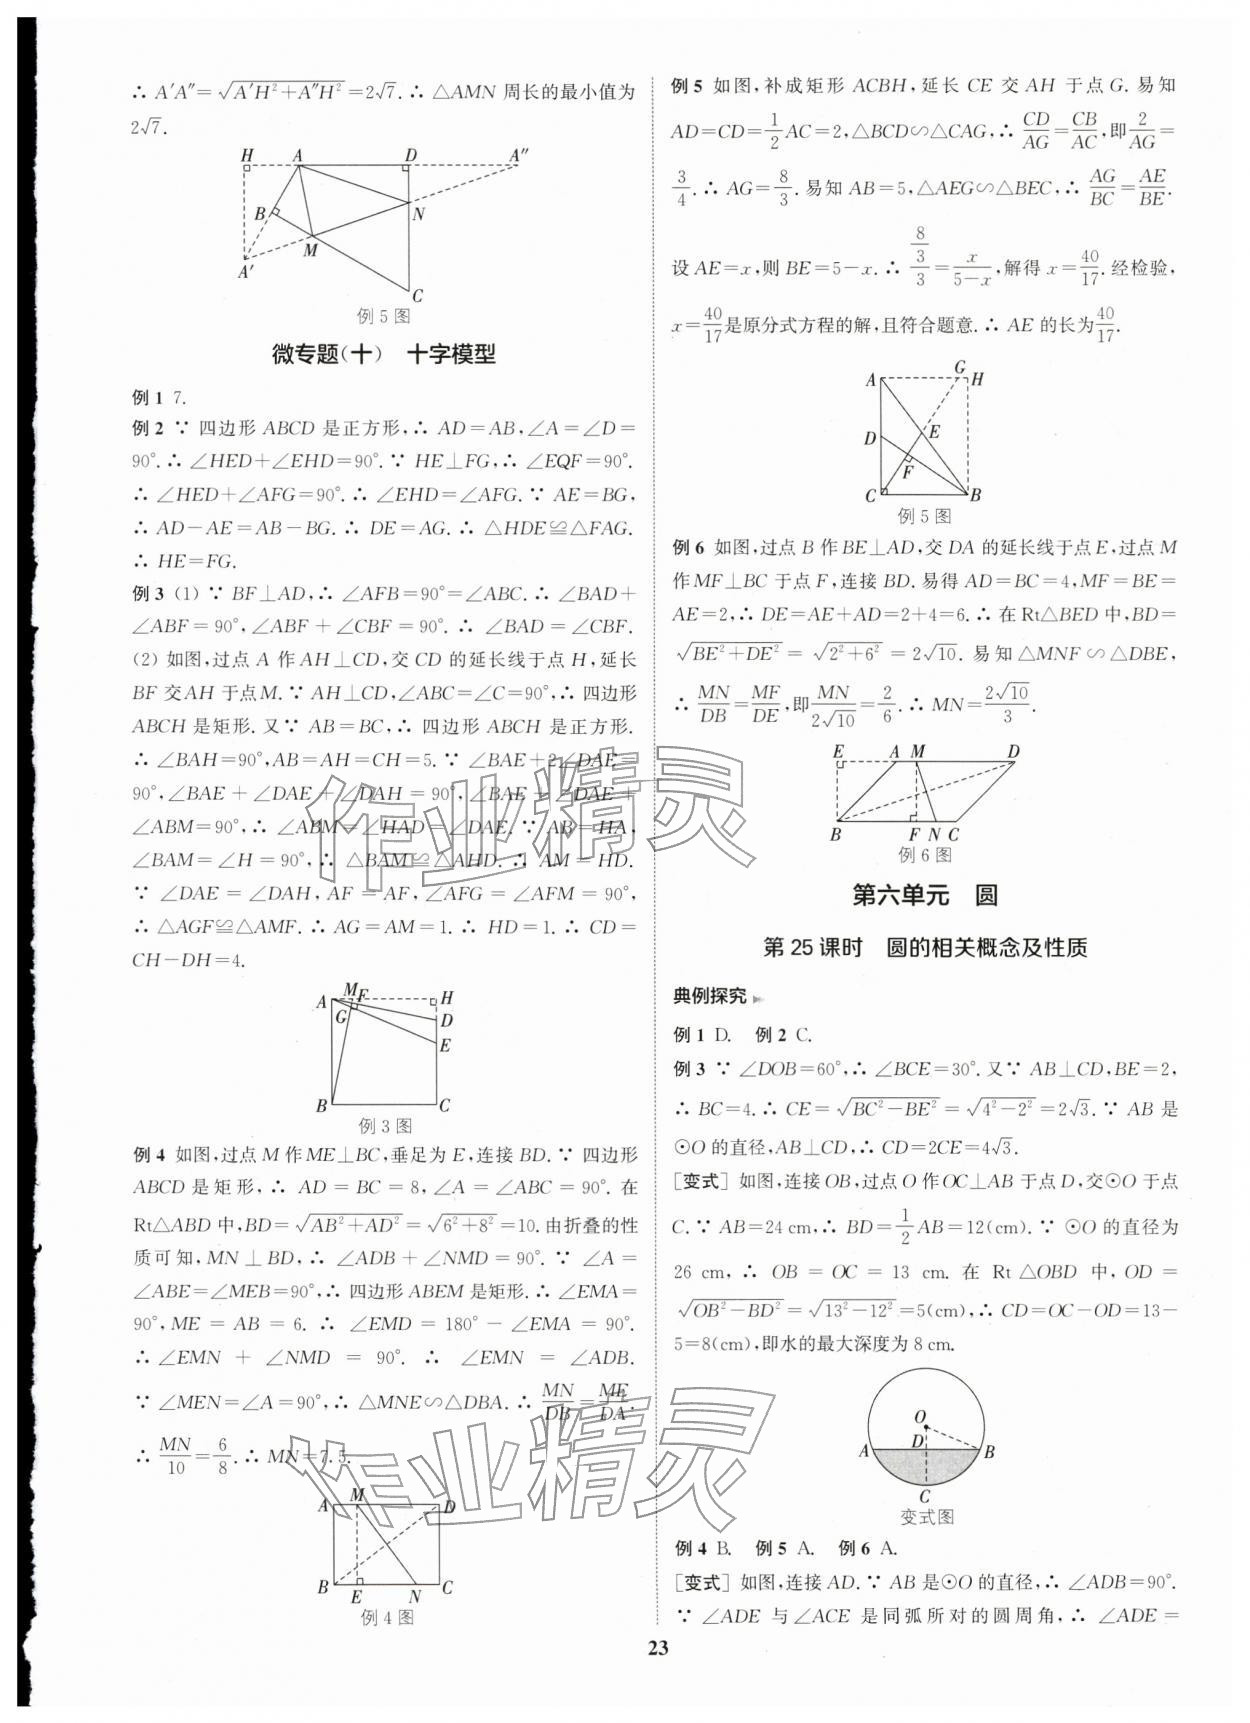 ∴ A′A″=√(A′H²+A″H²)=2√7.∴ △AMN 周长的最小值为
2√7.
H A D A″
B N
M
A′
C
例 5 图
微专题(十) 十字模型
例 1 7.
例 2 ∵ 四边形 ABCD 是正方形,∴ AD=AB,∠A=∠D=
90°.∴ ∠HED+∠EHD=90°.∵ HE⊥FG,∴ ∠EQF=90°.
∴ ∠HED+∠AFG=90°.∴ ∠EHD=∠AFG.∵ AE=BG,
∴ AD-AE=AB-BG.∴ DE=AG.∴ △HDE≌△FAG.
∴ HE=FG.
例 3 (1) ∵ BF⊥AD,∴ ∠AFB=90°=∠ABC.∴ ∠BAD+
∠ABF=90°,∠ABF+∠CBF=90°.∴ ∠BAD=∠CBF.
(2) 如图,过点 A 作 AH⊥CD,交 CD 的延长线于点 H,延长
BF 交AH 于点M.∵ AH⊥CD,∠ABC=∠C=90°,∴ 四边形
ABCH 是矩形.又∵ AB=BC,∴ 四边形 ABCH 是正方形.
∴ ∠BAH=90°,AB=AH=CH=5.∵ ∠BAE+2∠DAE=
90°,∠BAE+∠DAE+∠DAH=90°,∠BAE+∠DAE
+∠ABM=90°,∴ ∠ABM=∠HAD=∠DAE.∵ AB=HA,
∠BAM=∠H=90°,∴ △BAM≌△AHD.∴ AM=HD.
∵ ∠DAE=∠DAH,AF=AF,∠AFG=∠AFM=90°,
∴ △AGF≌△AMF.∴ AG=AM=1.∴ HD=1.∴ CD=
CH-DH=4.
A M F H
G D
E
B C
例 3 图
例 4 如图,过点 M 作 ME⊥BC,垂足为 E,连接 BD.∵ 四边形
ABCD 是矩形,∴ AD=BC=8,∠A=∠ABC=90°.在
Rt△ABD 中,BD=√(AB²+AD²)=√(6²+8²)=10.由折叠的性
质可知,MN⊥BD,∴ ∠ADB+∠NMD=90°.∵ ∠A=
∠ABE=∠MEB=90°,∴ 四边形 ABEM 是矩形.∴ ∠EMA=
90°,ME=AB=6.∴ ∠EMD=180°-∠EMA=90°.
∴ ∠EMN+∠NMD=90°.∴ ∠EMN=∠ADB.
∵ ∠MEN=∠A=90°,∴ △MNE∽△DBA.∴ MN/DB=ME/DA.
∴ MN/10=6/8.∴ MN=7.5.
A M D
B E N C
例 4 图
例 5 如图,补成矩形 ACBH,延长 CE 交 AH 于点 G.易知
AD=CD=1/2AC=2,△BCD∽△CAG,∴ CD/AG=CB/AC,即2/AG=
3/4.∴ AG=8/3.易知 AB=5,△AEG∽△BEC,∴ AG/BC=AE/BE.
设 AE=x,则 BE=5-x.∴ (8/3)/3=x/(5-x),解得 x=40/17.经检验,
x=40/17是原分式方程的解,且符合题意.∴ AE 的长为40/17.
G
A H
D E
F
C B
例 5 图
例 6 如图,过点 B 作 BE⊥AD,交 DA 的延长线于点 E,过点 M
作 MF⊥BC 于点 F,连接 BD.易得 AD=BC=4,MF=BE=
AE=2,∴ DE=AE+AD=2+4=6.∴ 在 Rt△BED 中,BD=
√(BE²+DE²)=√(2²+6²)=2√10.易知△MNF∽△DBE,
∴ MN/DB=MF/DE,即MN/(2√10)=2/6.∴ MN=2√10/3.
E A M D
B F N C
例 6 图
第六单元 圆
第 25 课时 圆的相关概念及性质
典例探究
例 1 D. 例 2 C.
例 3 ∵ ∠DOB=60°,∴ ∠BCE=30°.又∵ AB⊥CD,BE=2,
∴ BC=4.∴ CE=√(BC²-BE²)=√(4²-2²)=2√3.∵ AB 是
⊙O 的直径,AB⊥CD,∴ CD=2CE=4√3.
[变式] 如图,连接 OB,过点 O 作 OC⊥AB 于点 D,交⊙O 于点
C.∵ AB=24 cm,∴ BD=1/2AB=12(cm).∵ ⊙O 的直径为
26 cm,∴ OB=OC=13 cm.在 Rt△OBD 中,OD=
√(OB²-BD²)=√(13²-12²)=5(cm),∴ CD=OC-OD=13-
5=8(cm),即水的最大深度为 8 cm.
O
A D B
C
变式图
例 4 B. 例 5 A. 例 6 A.
[变式] 如图,连接 AD.∵ AB 是⊙O 的直径,∴ ∠ADB=90°.
∵ ∠ADE 与∠ACE 是同弧所对的圆周角,∴ ∠ADE=
23
作业精灵
作业精灵